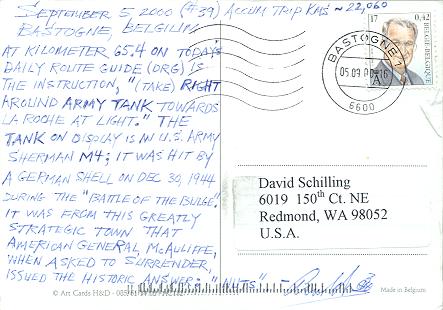 SEPTEMBER 5 2000 (#39) ACCUM TRIP KMS ~ 22,060
BASTOGNE, BELGIUM
AT KILOMETER 65.4 ON TODAY'S
DAILY ROUTE GUIDE (DRG) IS
THE INSTRUCTION, "(TAKE) RIGHT
AROUND ARMY TANK TOWARDS
LA ROCHE AT LIGHT." THE
TANK ON DISPLAY IS IN U.S. ARMY
SHERMAN M4; IT WAS HIT BY
A GERMAN SHELL ON DEC 30, 1944
DURING THE "BATTLE OF THE BULGE."
IT WAS FROM THIS GREATLY
STRATEGIC TOWN THAT
AMERICAN GENERAL McAULIFFE,
WHEN ASKED TO SURRENDER,
ISSUED THE HISTORIC ANSWER: "NUTS" -
17 0,42
BELGIE-BELGIQUE
A
BASTOGNE 1
05.09
16
6600
David Schilling
6019 150th Ct. NE
Redmond, WA 98052
U.S.A.
© Art Cards H&D - 
Made in Belgium